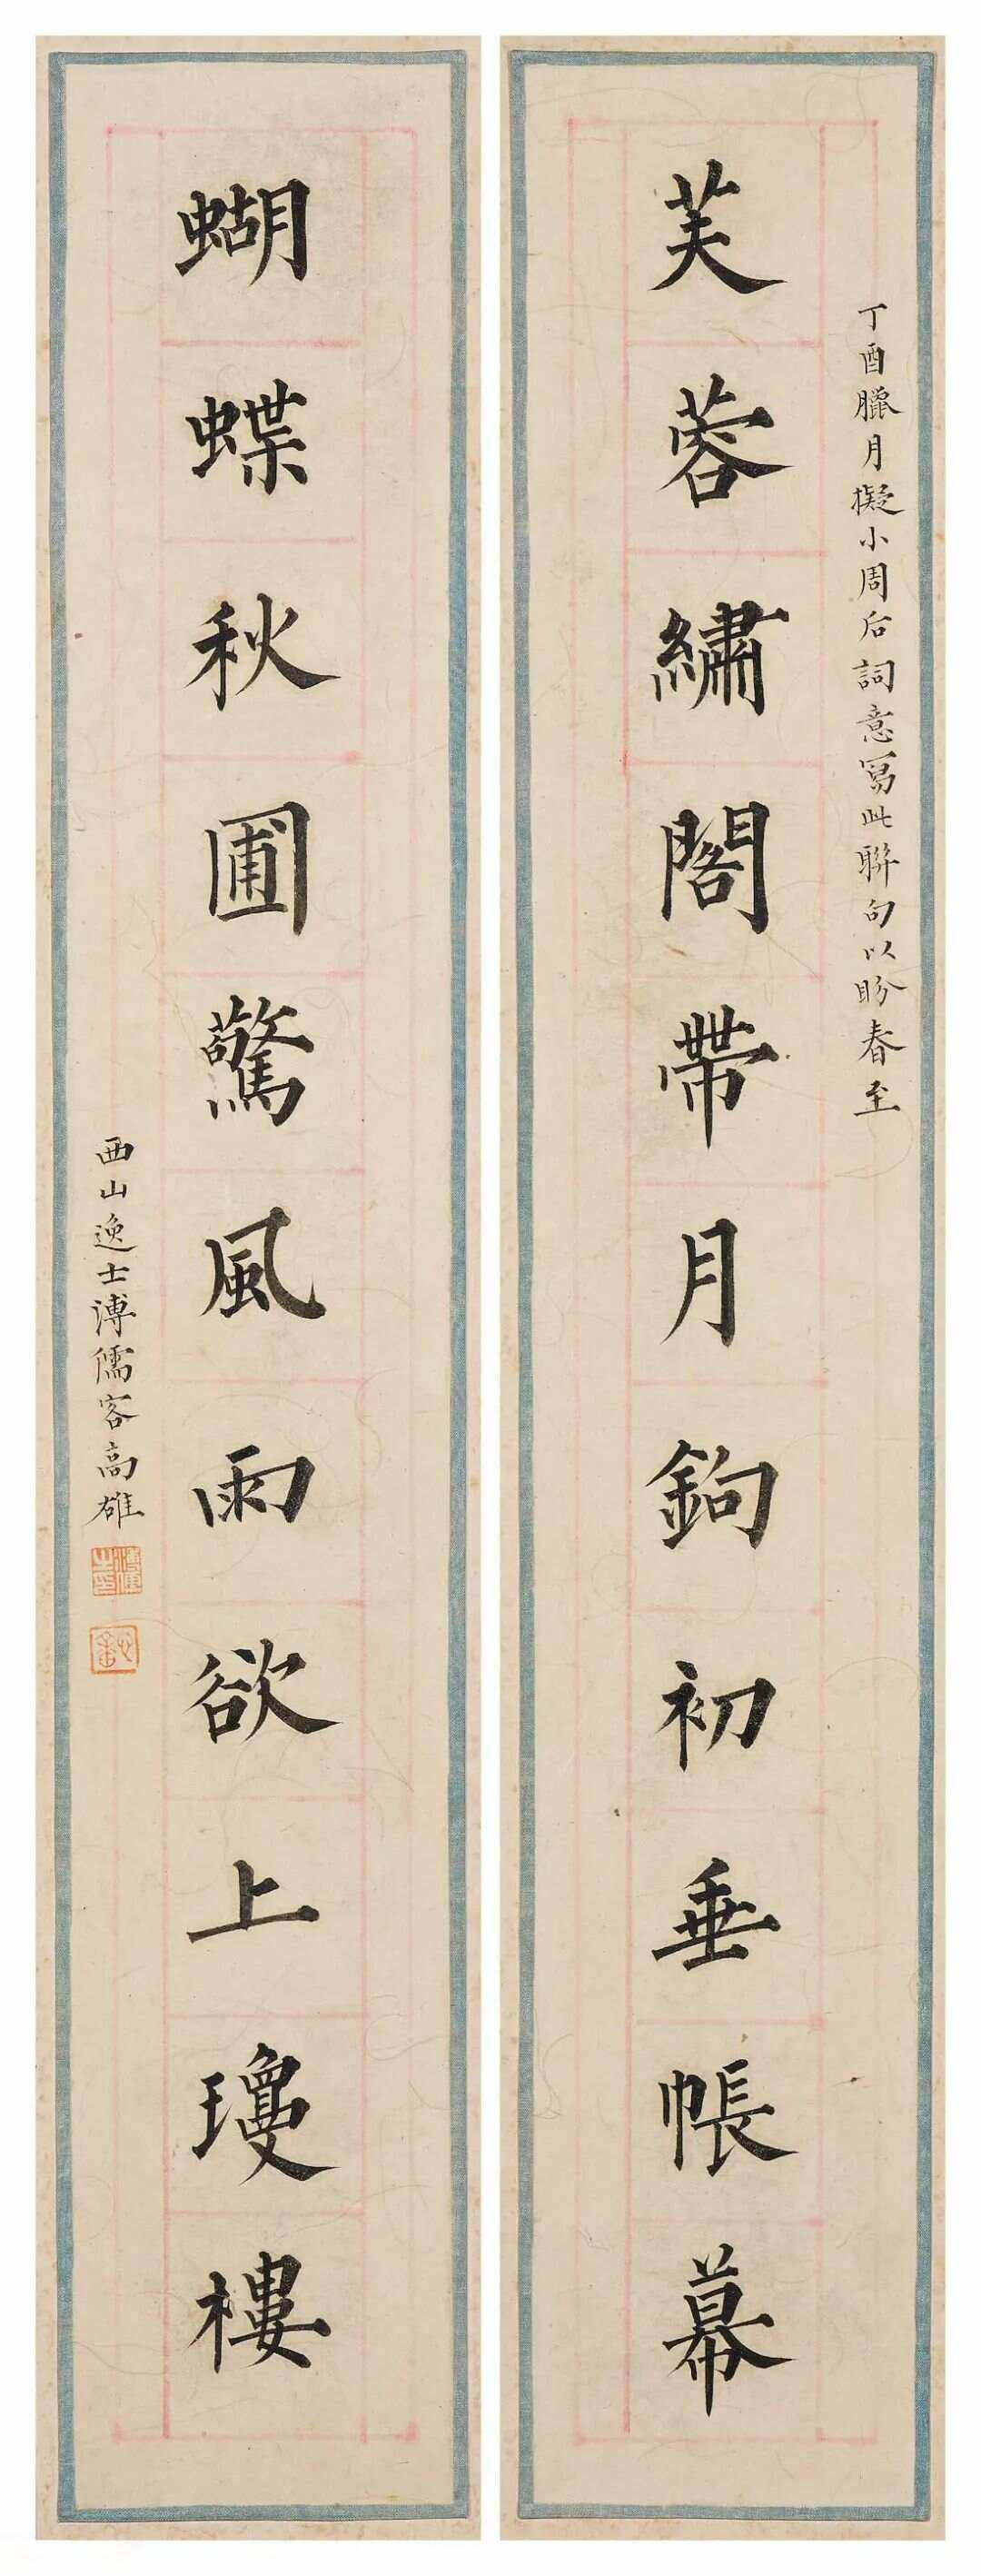 丁酉臘月擬小周后詞意寫此聯句以盼春至
芙蓉繡閣帶月鉤初垂帳幕
蝴蝶秋圃驚風雨欲上瓊樓
西山逸士溥儒客高雄
溥儒之印